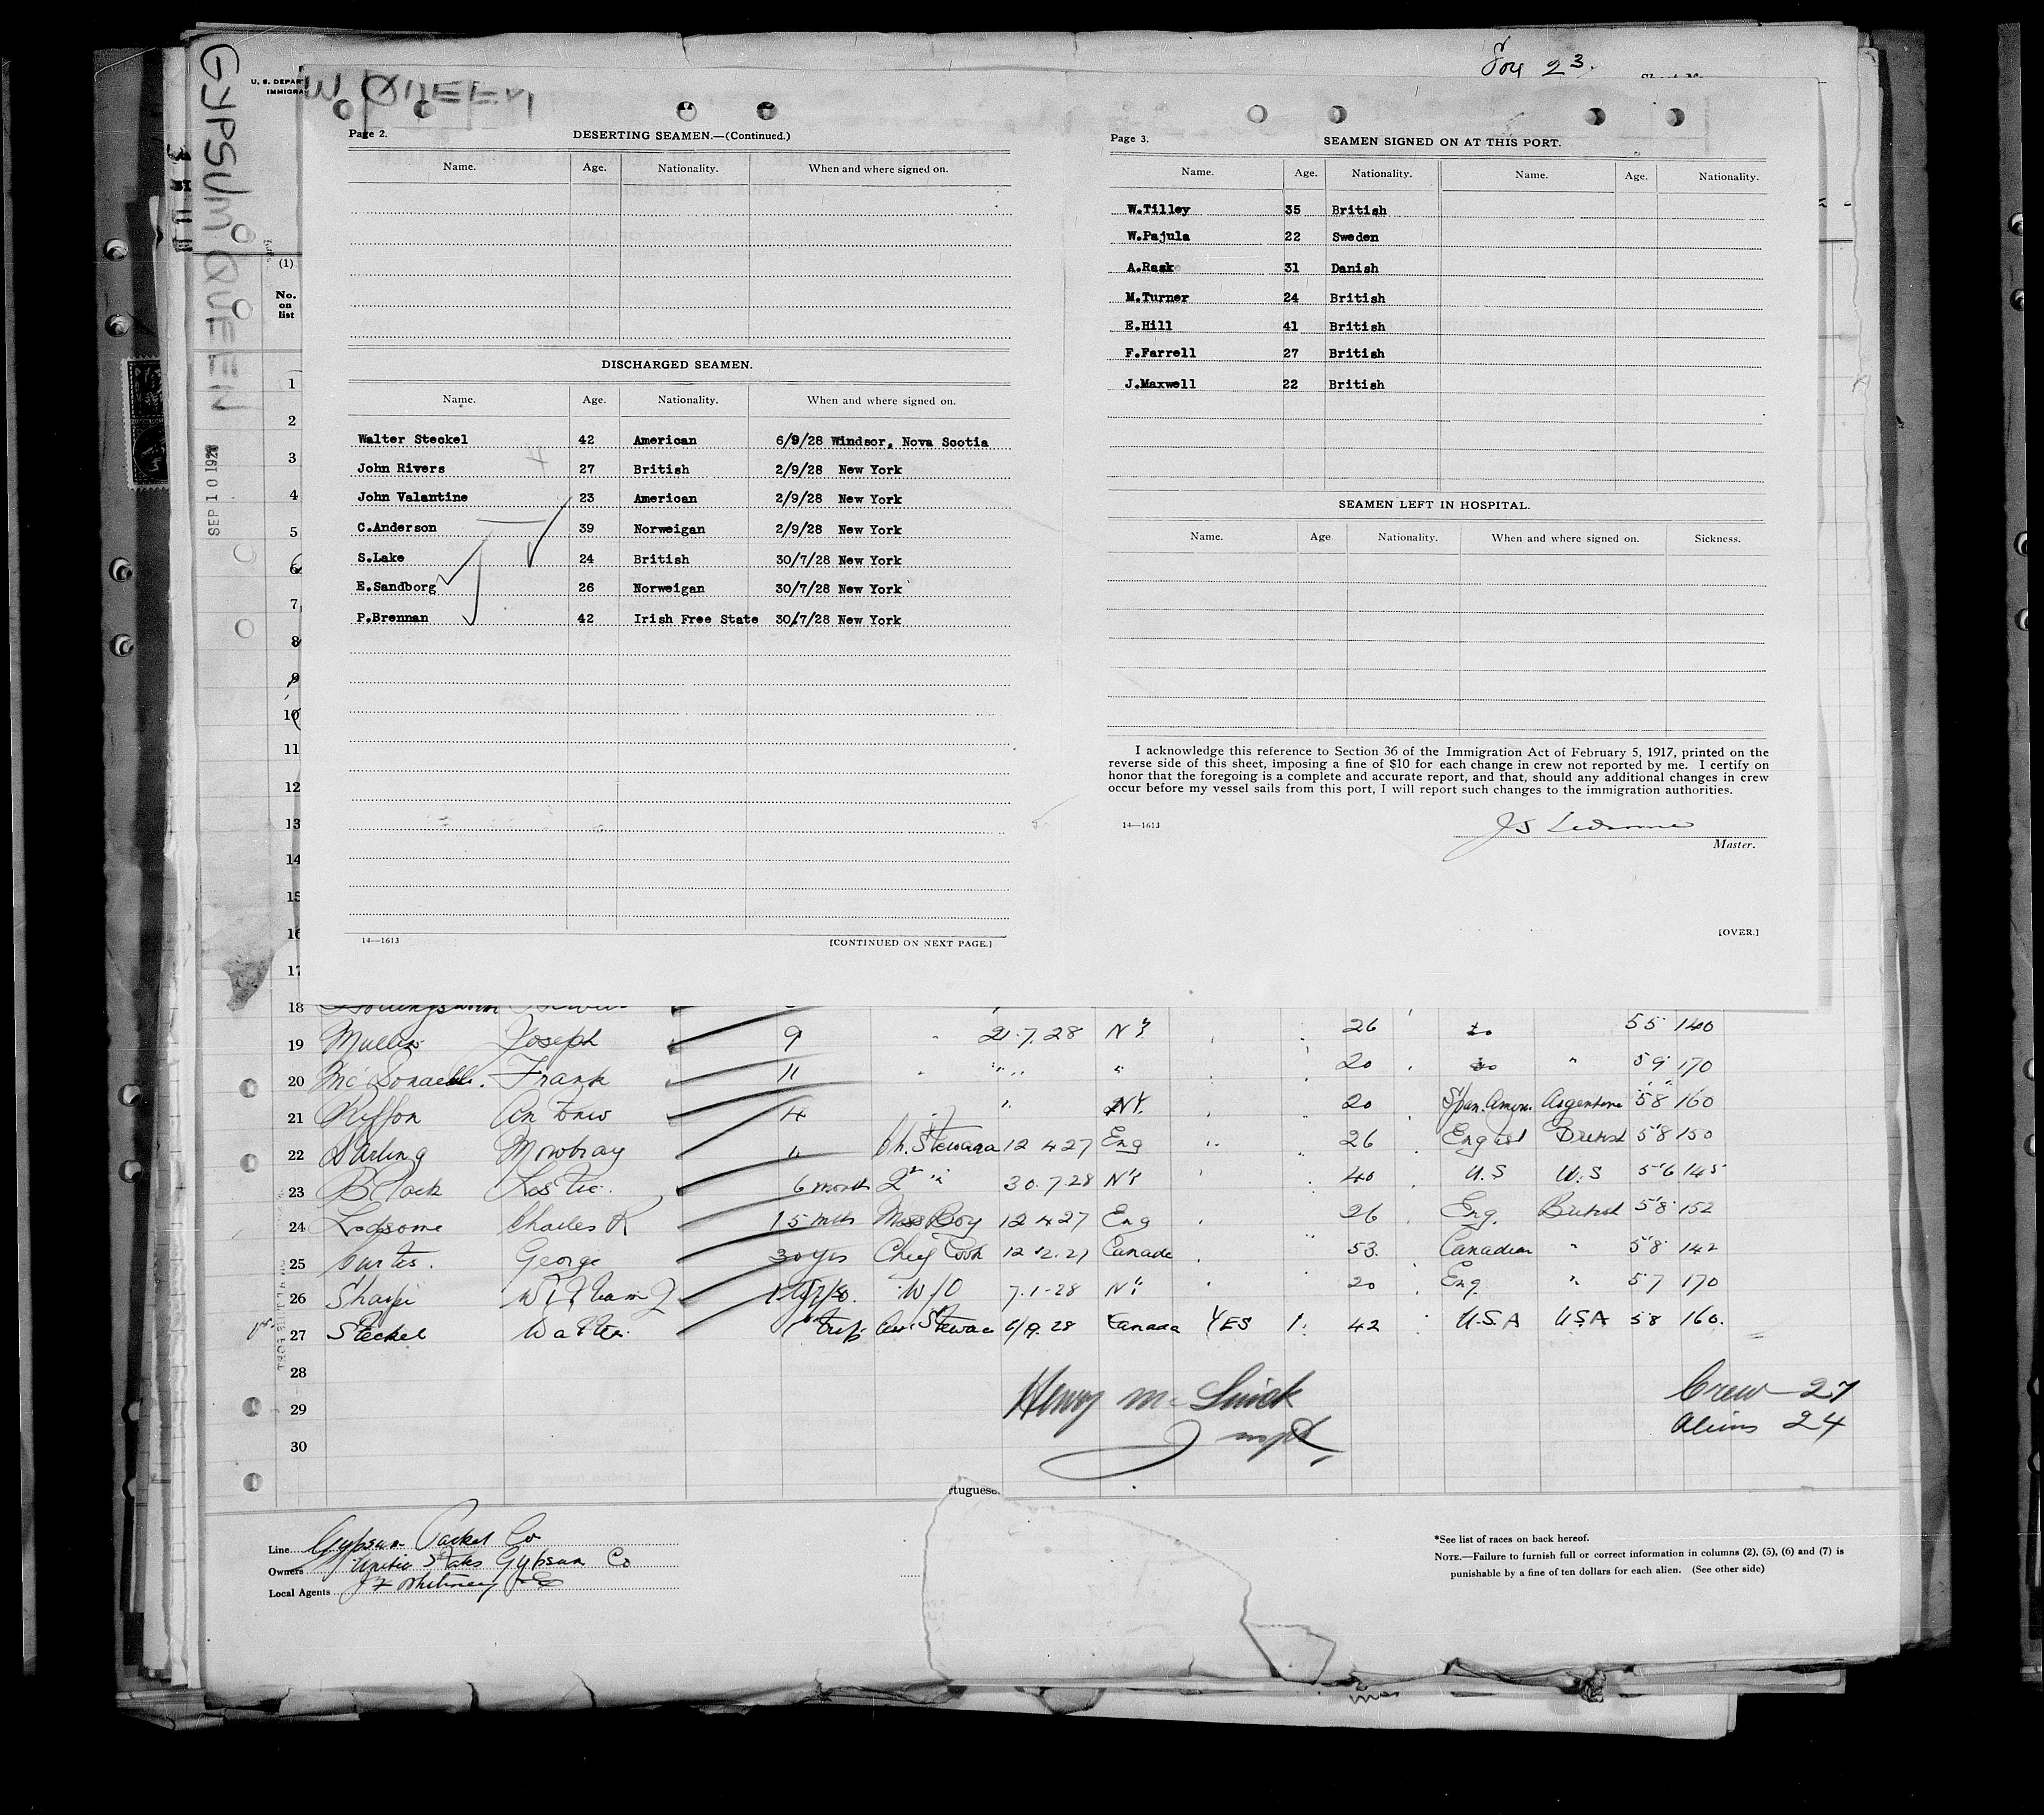 GYPSUM QUEEN
SEP 10 1928
U. S. DEPAR
IMMIGRA
M QUEEN
Page 2.
DESERTING SEAMEN.—(Continued.)
Name. Age. Nationality. When and where signed on.
DISCHARGED SEAMEN.
Name. Age. Nationality. When and where signed on.
Walter Steckel 42 American 6/9/28 Windsor, Nova Scotia
John Rivers 27 British 2/9/28 New York
John Valantine 23 American 2/9/28 New York
C.Anderson 39 Norweigan 2/9/28 New York
S.Lake 24 British 30/7/28 New York
E.Sandborg 26 Norweigan 30/7/28 New York
P.Brennan 42 Irish Free State 30/7/28 New York
14—1613 [CONTINUED ON NEXT PAGE.]
Page 3.
SEAMEN SIGNED ON AT THIS PORT.
Name. Age. Nationality. Name. Age. Nationality.
W.Tilley 35 British
W.Pajula 22 Sweden
A.Rask 31 Danish
M.Turner 24 British
E.Hill 41 British
F.Farrell 27 British
J.Maxwell 22 British
SEAMEN LEFT IN HOSPITAL.
Name. Age Nationality. When and where signed on. Sickness.
I acknowledge this reference to Section 36 of the Immigration Act of February 5, 1917, printed on the
reverse side of this sheet, imposing a fine of $10 for each change in crew not reported by me. I certify on
honor that the foregoing is a complete and accurate report, and that, should any additional changes in crew
occur before my vessel sails from this port, I will report such changes to the immigration authorities.
14—1613
Master.
[OVER.]
(1)
No.
on
list
1
2
3
4
5
6
7
8
9
10
11
12
13
14
15
16
17
18
19 Joseph 9 21.7.28 NY 26 do 5 5 140
20 Frank 11 " 20 do " 5 9 170
21 4 NY. 20 Span. Amer. Argentine 5 8 160
22 Darling Mowbray Ch. Steward 12 4 27 Eng 26 British 5 8 150
23 Black 6 month 2nd " 30.7.28 NY 40 U.S U.S 5 6 145
24 Ledsome Charles R 15 mths Mess Boy 12 4 27 Eng 26 Eng. British 5 8 152
25 Curtis. George 30 yrs Chief Cook Canada 53. Canadian " 5 8 142
26 Sharp William W/O 7.1.28 NY 20 Eng. " 5 7 170
27 Steckel Walter. 1st trip 6/9.28 Canada YES 1. 42 U.S.A USA 5 8 160.
28
29
30
Crew 27
Aliens 24
rtuguese.
Line Gypsum Packet Co
Owners United States Gypsum Co
Local Agents J F Whitney & Co
*See list of races on back hereof.
NOTE.—Failure to furnish full or correct information in columns (2), (5), (6) and (7) is
punishable by a fine of ten dollars for each alien. (See other side)